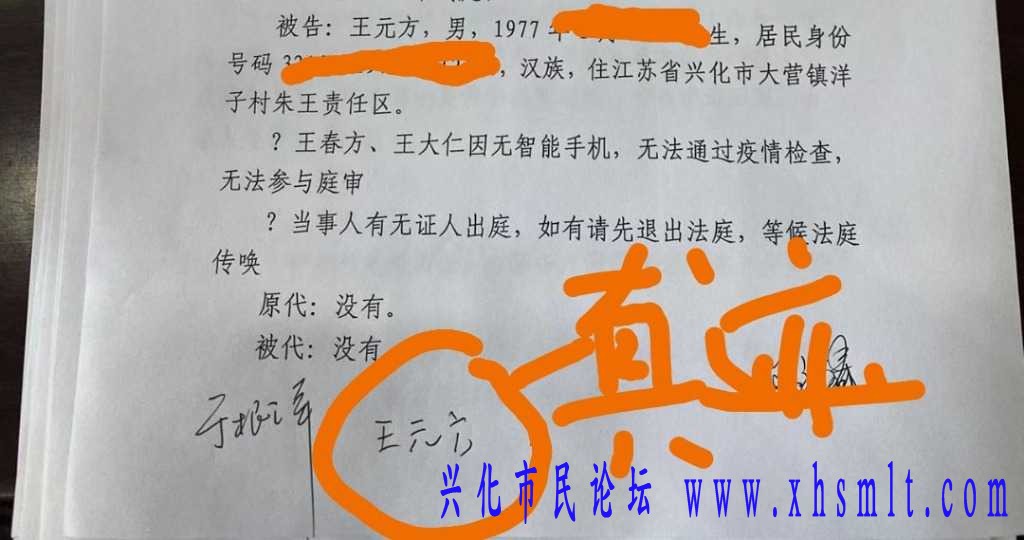 被告：王元方，男，1977年
生，居民身份
号码 32
，汉族，住江苏省兴化市大营镇洋
子村朱王责任区。
？王春方、王大仁因无智能手机，无法通过疫情检查，
无法参与庭审
？当事人有无证人出庭，如有请先退出法庭，等候法庭
传唤
原代：没有。
被代：没有
真迹
王元方
兴化市民论坛 www.xhsmlt.com